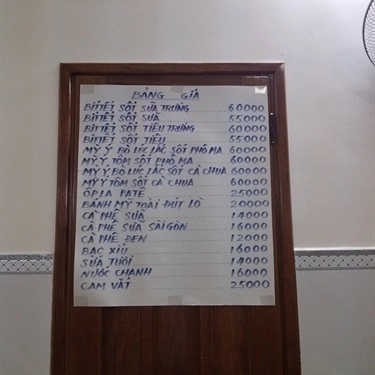 BẢNG GIÁ
BÍTTẾT SỐT SỮA TRỨNG 60000
BÍTTẾT SỐT SỮA 55000
BÍTTẾT SỐT TIÊU TRỨNG 60000
BÍTTẾT SỐT TIÊU 55000
MỲ Ý BÒ LÚC LẮC SỐT PHÔ MA 60000
MỲ Ý TÔM SỐT PHÔ MA 60000
MỲ Ý BÒ LÚC LẮC SỐT CÀ CHUA 60000
MỲ Ý TÔM SỐT CÀ CHUA 60000
ỐP LA PATÊ 25000
BÁNH MỲ TOÀI ĐÚT LÒ 20000
CÀ PHÊ SỮA 14000
CÀ PHÊ SỮA SÀI GÒN 16000
CÀ PHÊ ĐEN 12000
BẠC XỈU 16000
SỮA TƯƠI 14000
NƯỚC CHANH 16000
CAM VẮT 25000